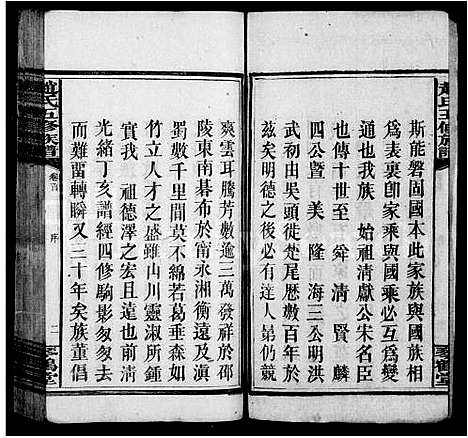 趙氏五修族譜
琴鶴堂
斯能磐固國本此家族與國族相
為表裏卽家乘與國乘必互為變
通也我族 始祖清獻公宋名臣
也傳十世至 舜 清 賢 麟
四公暨 美 隆 海三公明洪
武初由吳頭徙楚尾歷數百年於
茲矣明德之後必有達人昴仍競
爽雲耳騰芳數逾三萬發祥於邵
陵東南碁布於甯永湘衡遠及滇
蜀數千里間莫不綿若葛垂森如
竹立人才之盛雖山川靈淑所鍾
我 祖德澤之宏且遠也可知矣
光緒丁亥譜經四修駒影匆匆去
而難留轉瞬又三十年矣族董倡
趙氏五修族譜
卷首
序
二
琴鶴堂